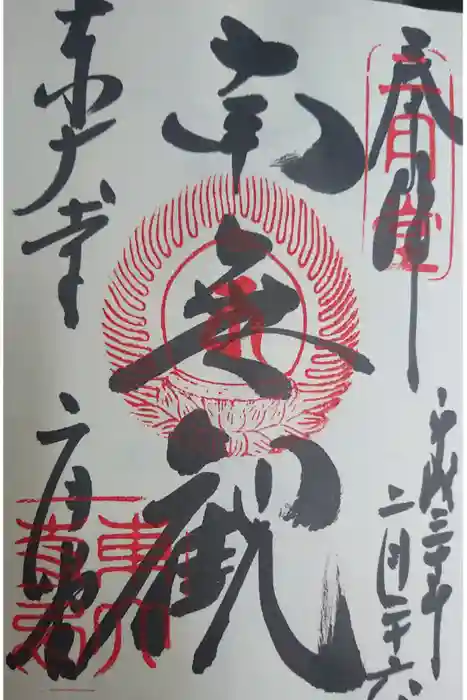 奉拝
二月堂
平成三十年
二月二十六
南無観
東大寺
二月堂
東大寺